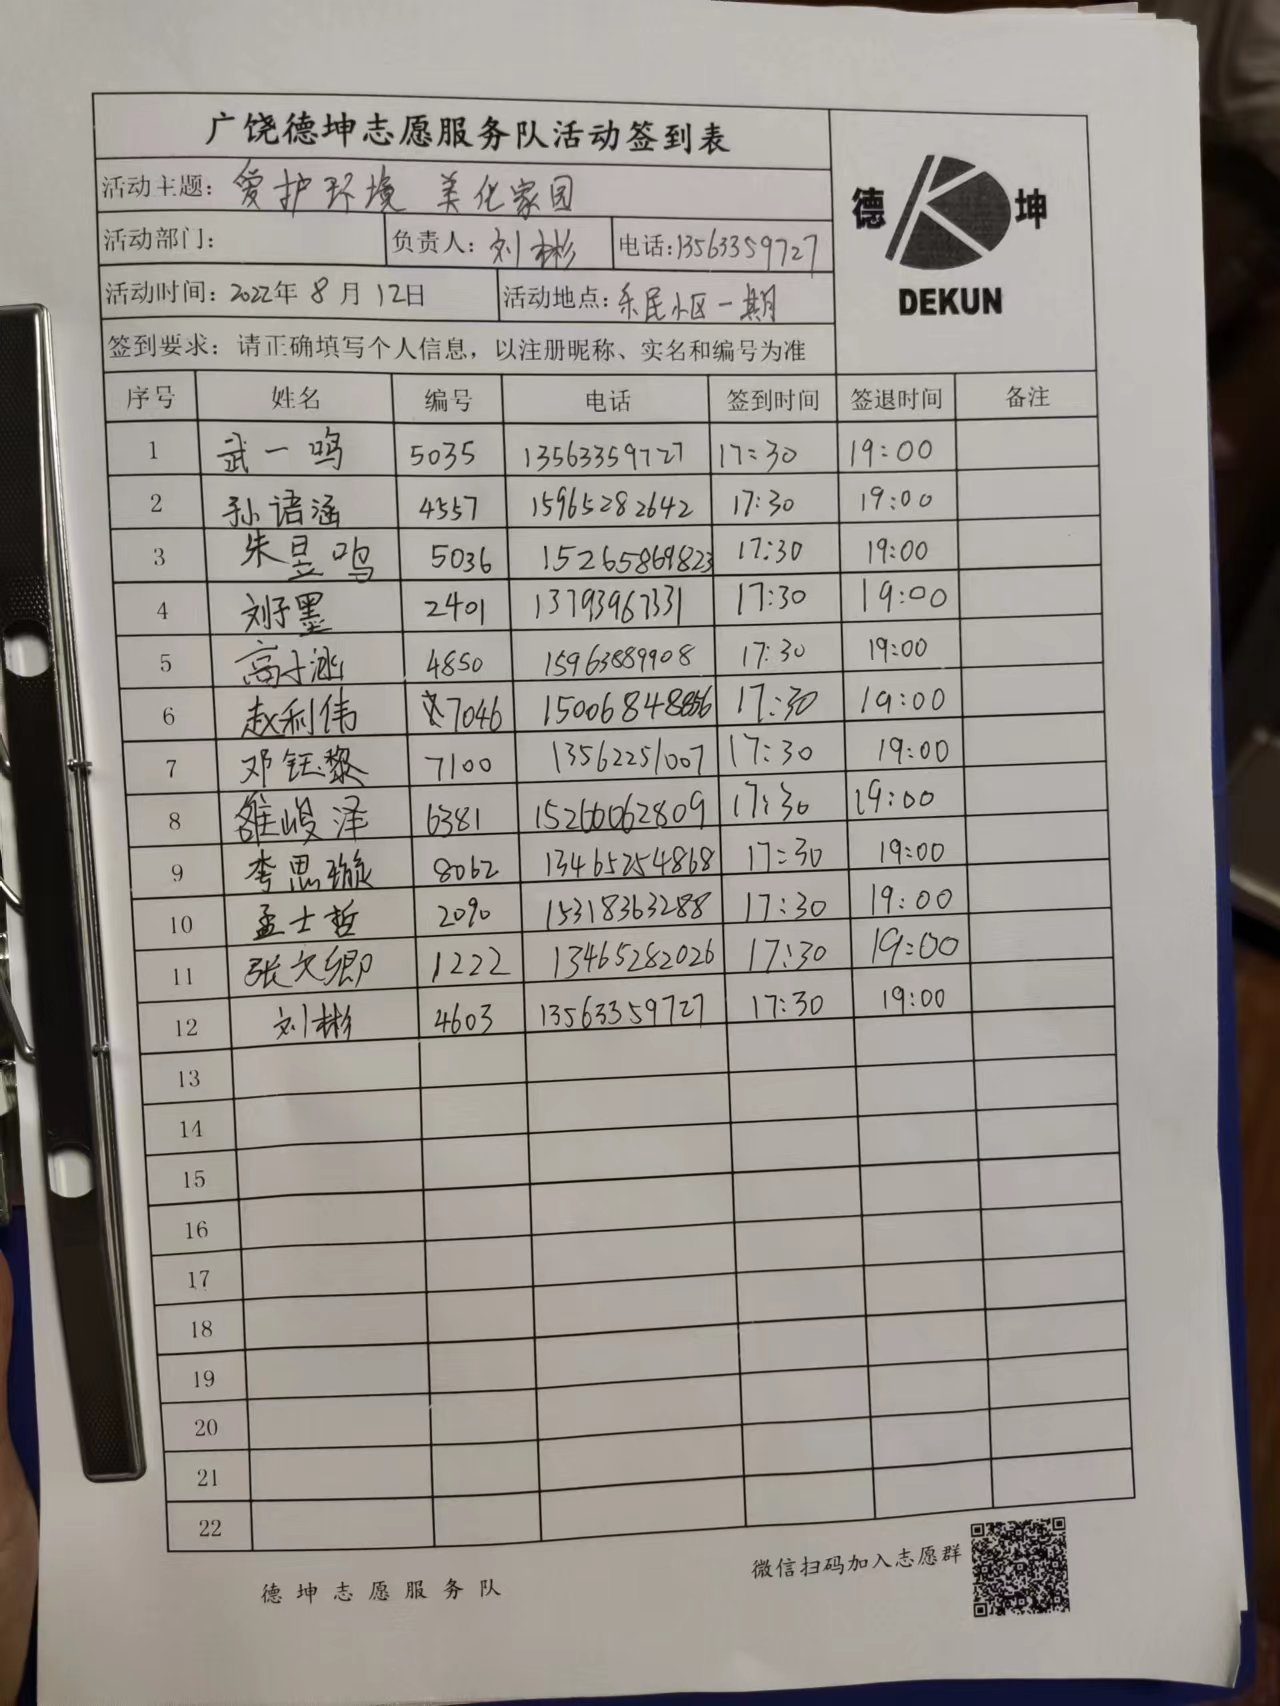 广饶德坤志愿服务队活动签到表
德 坤
DEKUN
活动主题：爱护环境 美化家园
活动部门： 负责人：刘彬 电话：13563359727
活动时间：2022年8月12日 活动地点：乐民小区一期
签到要求：请正确填写个人信息，以注册昵称、实名和编号为准
序号 姓名 编号 电话 签到时间 签退时间 备注
1 武一鸣 5035 13563359727 17:30 19:00
2 孙语涵 4557 15965282642 17:30 19:00
3 朱昱鸣 5036 15265869823 17:30 19:00
4 刘子墨 2401 13793967331 17:30 19:00
5 高子涵 4850 15963889908 17:30 19:00
6 赵利伟 7046 15006848856 17:30 19:00
7 邓钰黎 7100 13562251007 17:30 19:00
8 雒峻泽 6381 15266062809 17:30 19:00
9 李思璇 8062 13465254868 17:30 19:00
10 孟士哲 2090 15318363288 17:30 19:00
11 张文卿 1222 13465282026 17:30 19:00
12 刘彬 4603 13563359727 17:30 19:00
13
14
15
16
17
18
19
20
21
22
德坤志愿服务队
微信扫码加入志愿群